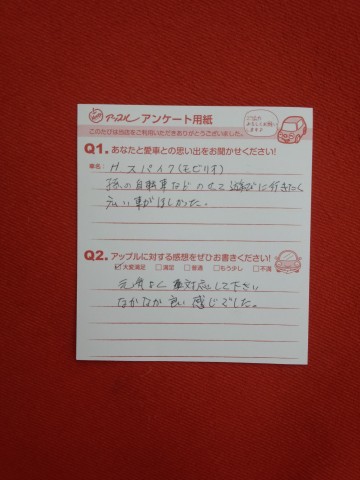 アップル アンケート用紙
このたびは当店をご利用いただきありがとうございました。
ご協力
よろしくお願い
します♪
Q1. あなたと愛車との思い出をお聞かせください!
車名: H スパイク(モビリオ)
孫の自転車など のせて 遊びに行きたく
広い車がほしかった。
Q2. アップルに対する感想をぜひお書きください!
☑大変満足 □満足 □普通 □もう少し □不満
元気よく 対応して下さい
なかなか良い感じでした。